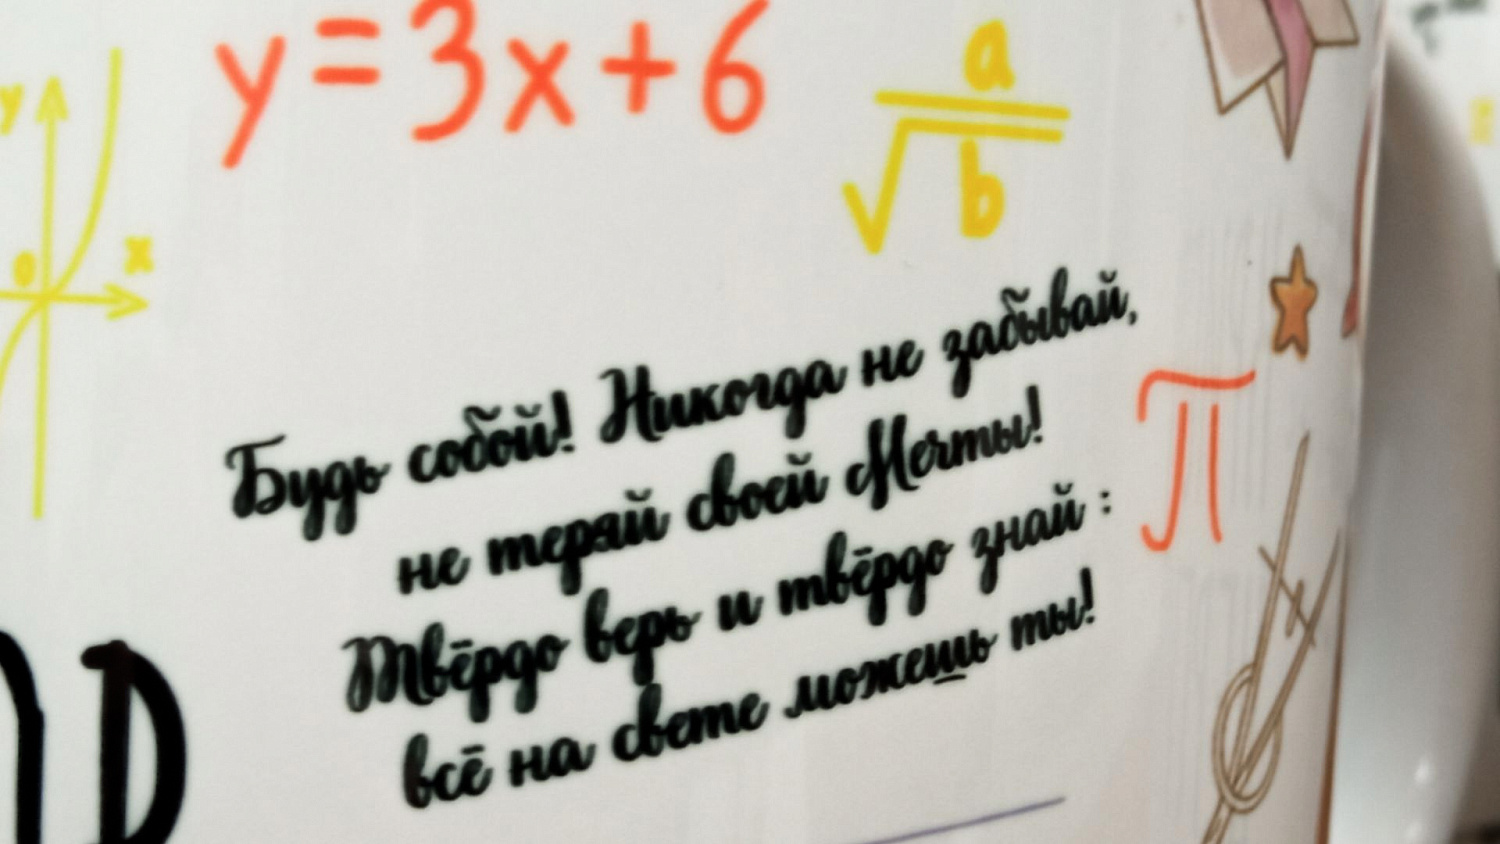 y = 3x + 6
a
√b
y
0 x
Будь собой! Никогда не забывай,
не теряй своей Мечты!
Твёрдо верь и твёрдо знай :
всё на свете можешь ты!
π